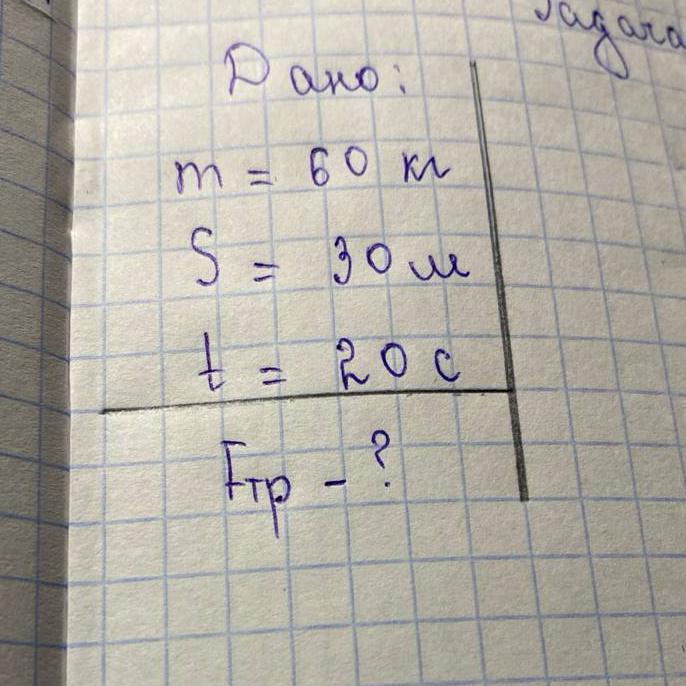 Задача
Дано:
m = 60 кг
S = 30 м
t = 20 с
Fтр - ?